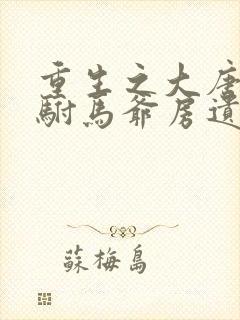 重生之大唐
駙馬爺房遺
蘇梅島